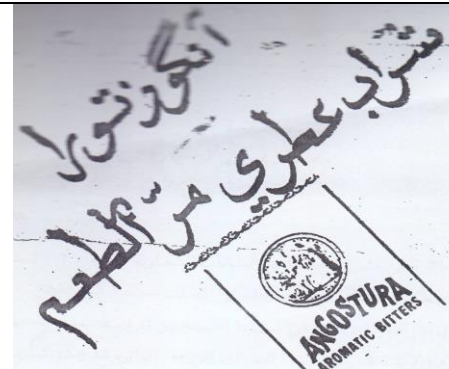 أنكورتورا
شراب عطري مرّ الطعم
ANGOSTURA
AROMATIC BITTERS